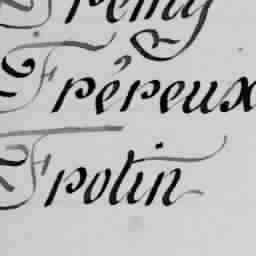 Fremy
Frêreux
Frotin